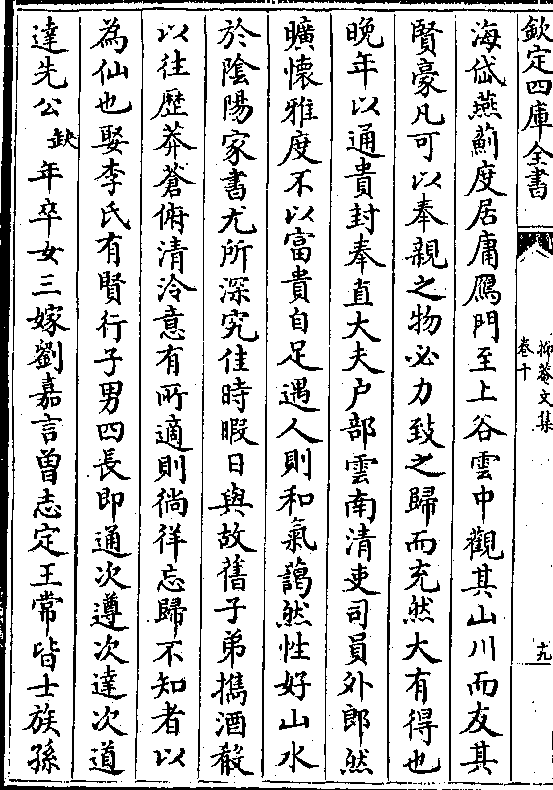 欽定四庫全書
抑菴文集
卷十
十九
海岱燕薊度居庸鴈門至上谷雲中觀其山川而友其
賢豪凡可以奉親之物必力致之歸而充然大有得也
晚年以通貴封奉直大夫户部雲南清吏司員外郎然
曠懷雅度不以富貴自足遇人則和氣藹然性好山水
於陰陽家書尤所深究佳時暇日與故舊子弟攜酒殽
以往歴莽蒼俯清泠意有所適則徜徉忘歸不知者以
為仙也娶李氏有賢行子男四長即通次遵次達次道
達先公缺年卒女三嫁劉嘉言曽志定王常皆士族孫